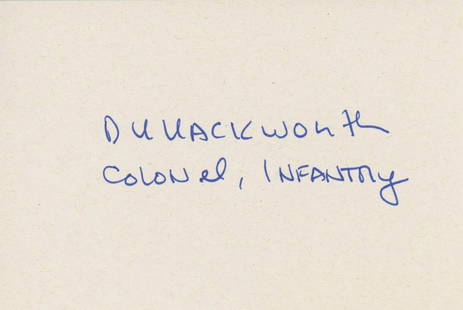 DHHACKWORTH
COLONEL, INFANTRY